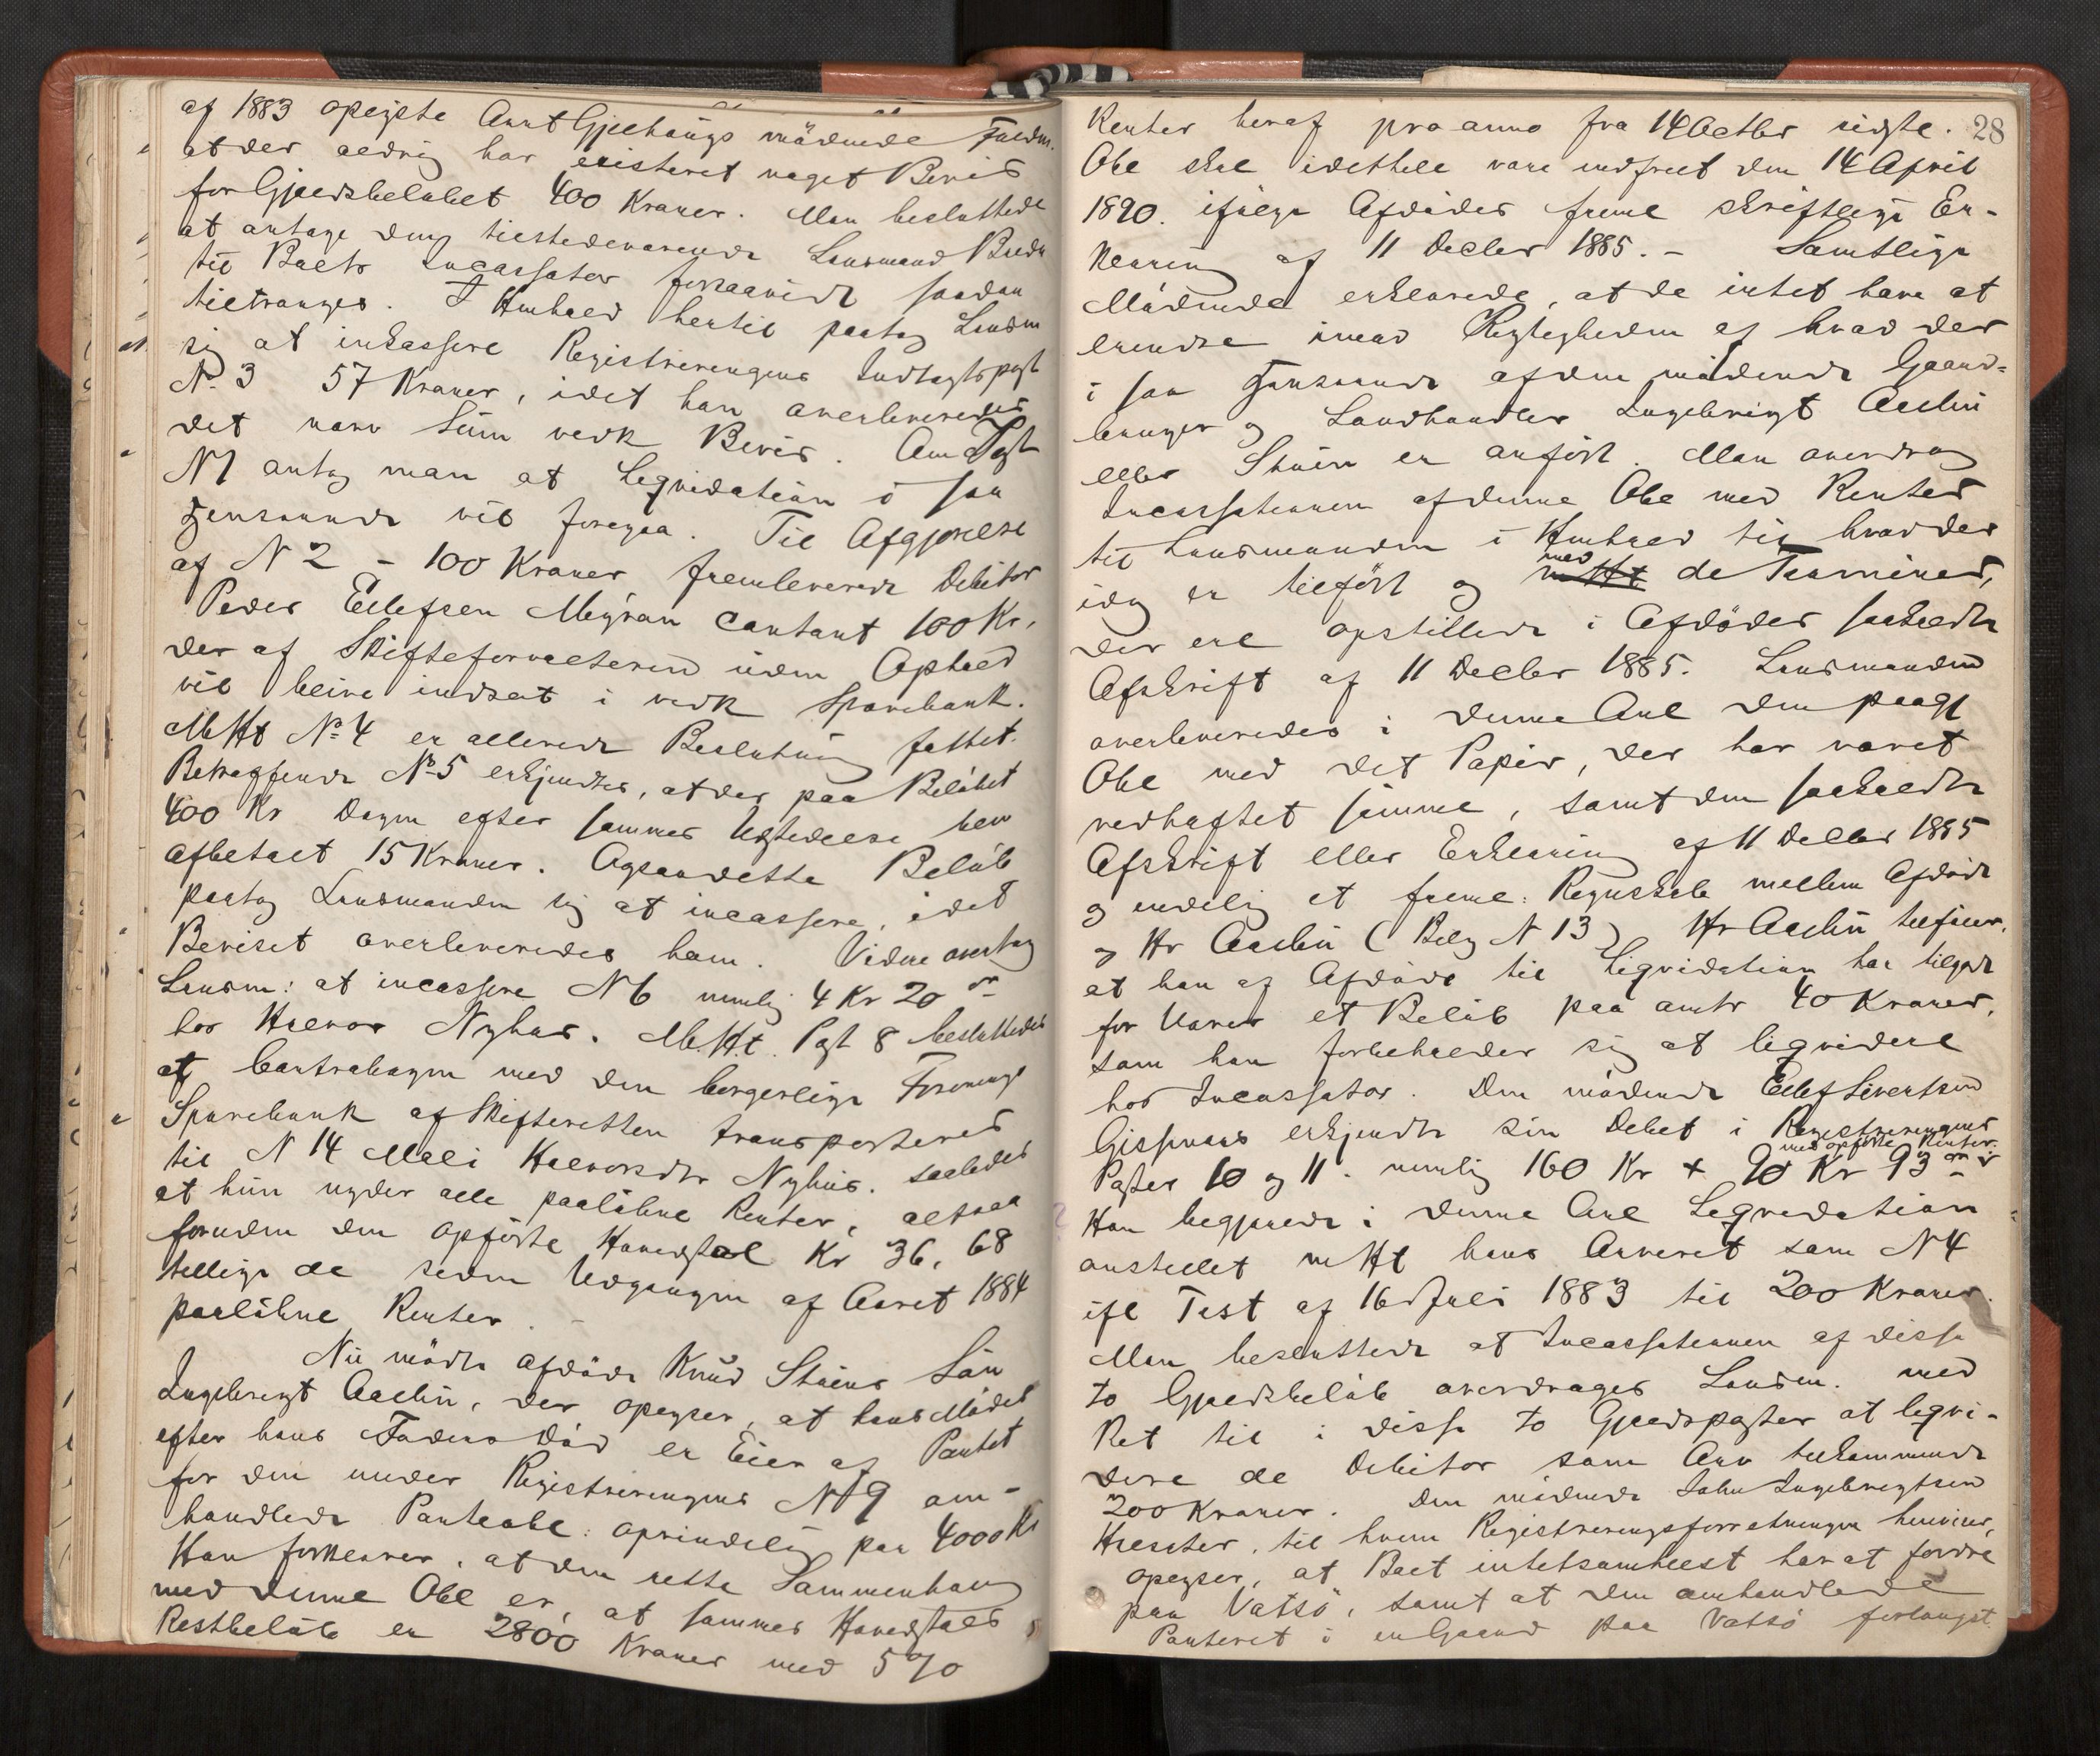 af 1883 opeiste Arnt Gjeehaugs mödende Fuldm.
at der aldrig har existeret noget Bevis
for Gjældsbelöbet 400 Kroner. Man besluttede
at antage den tilstedeværende Lensmand
til Boets Incassator forsaavidt saadan
tiltrænges. I Henhold hertil paatog Lensm
sig at inkassere Registreringens Indtægtspost
N. 3 57 Kroner, idet han overleveredes
det nævn Sum vedk Bevis. Om Post
N 1 antog man at Ligvidation i saa
Henseende vil foregaa. Til Afgjörelse
af N 2 - 100 Kroner fremleverede Debitor
Peder Ellefsen Megran contant 100 Kr.
der af Skifteforvalteren uden Ophold
vil blive indsat i vedk Sparebank.
M Ht No. 4 er allerede Beslutning fattet.
Betræffende No. 5 erkjendtes, at der paa Belöbet
400 Kr Dagen efter sammes Udstedelse blev
afbetalt 15 Kroner. Ogsaa dette Belöb
paatog Lensmanden sig at incassere, idet
Beviset overleveredes ham. Videre overtog
Lensm: at incassere N 6 nemlig 4 Kr 20 ör
hos Halvor Nyhus. M. Ht. Post 8 besluttedes
at Contrabogen med den borgerlige Forenings
Sparebank af Skifteretten transporteres
til N 14 Mali Halvorsdtr Nyhus. saaledes
at hun nyder alle paalöbne Renter, altsaa
foruden den opförte Hovedstol Kr 36, 68
tillige de siden Udgangen af Aaret 1884
paalöbne Renter. -
Nu mödte afdöde Knud Stuens Sön
Ingebrigt Aaslin, der oplyser, at hans Moder
efter hans Faders Död er Eier af Pantet
for den under Registreringens N 9 om-
handlede Panteobl: oprindelig paa 4000 Kr
Han forklarer, at den rette Sammenhæng
med denne Obl er, at sammes Hovedstols
Restbelöb er 2800 Kroner med 5 %
28
Renter heraf pro anno fra 14 Octbr sidstl.
Obl skal idethele være indfriet den 14 April
1890. ifölge Afdödes freml skriftlige Er-
klæring af 11 Decbr 1885. - Samtlige
Mödende erklærede, at de intet have at
erindre imod Rigtigheden af hvad der
i saa Henseende af den mödende Gaard-
bruger og Landhandler Ingebrigt Aaslin
eller Stuen er anfört. Man overdrog
Incassationen af denne Obl med Renter
til Lensmanden i Henhold til hvad der
idag er tilfört og med de Terminer,
der ere opstillede i Afdödes saakaldte
Afskrift af 11 Decbr 1885. Lensmanden
overleveredes i denne Anl den paagj
Obl med det Papir, der har været
vedhæftet samme, samt den saakaldte
Afskrift eller Erklæring af 11 Decbr 1885
og endelig et freml. Regnskab mellem Afdöde
og Hr Aaslin (Bilag N 13) Hr Aaslin tilföier,
at han af Afdöde til Ligvidation har tilgode
for Varer et Belöb paa omtr 40 Kroner,
som han forbeholder sig at ligvidere
hos Incassator. Den mödende Ellef Sivertsen
Gissenaas erkjendte sin Debet i Registreringens
Poster 10 og 11. nemlig 160 Kr + 90 Kr 93 ör
med opförte Renter.
Han begjærede i denne Anl Ligvidation
anstillet m Ht hans Arveret som N 4
ifl Test af 16 Juli 1883 til 200 Kroner.
Man besluttede at Incassationen af disse
to Gjældsbelöb overdrages Lensm. med
Ret til i disse to Gjældsposter at ligvi-
dere de Debitor som Arv tilkommende
200 Kroner. Den mödende John Ingebrigtsen
til hvem Registreringsforretningen henviser,
oplyser, at Boet intetsomhelst har at fordre
paa Vatsö, samt at den omhandlede
Panteret i en Gaard paa Vatsö forlængst